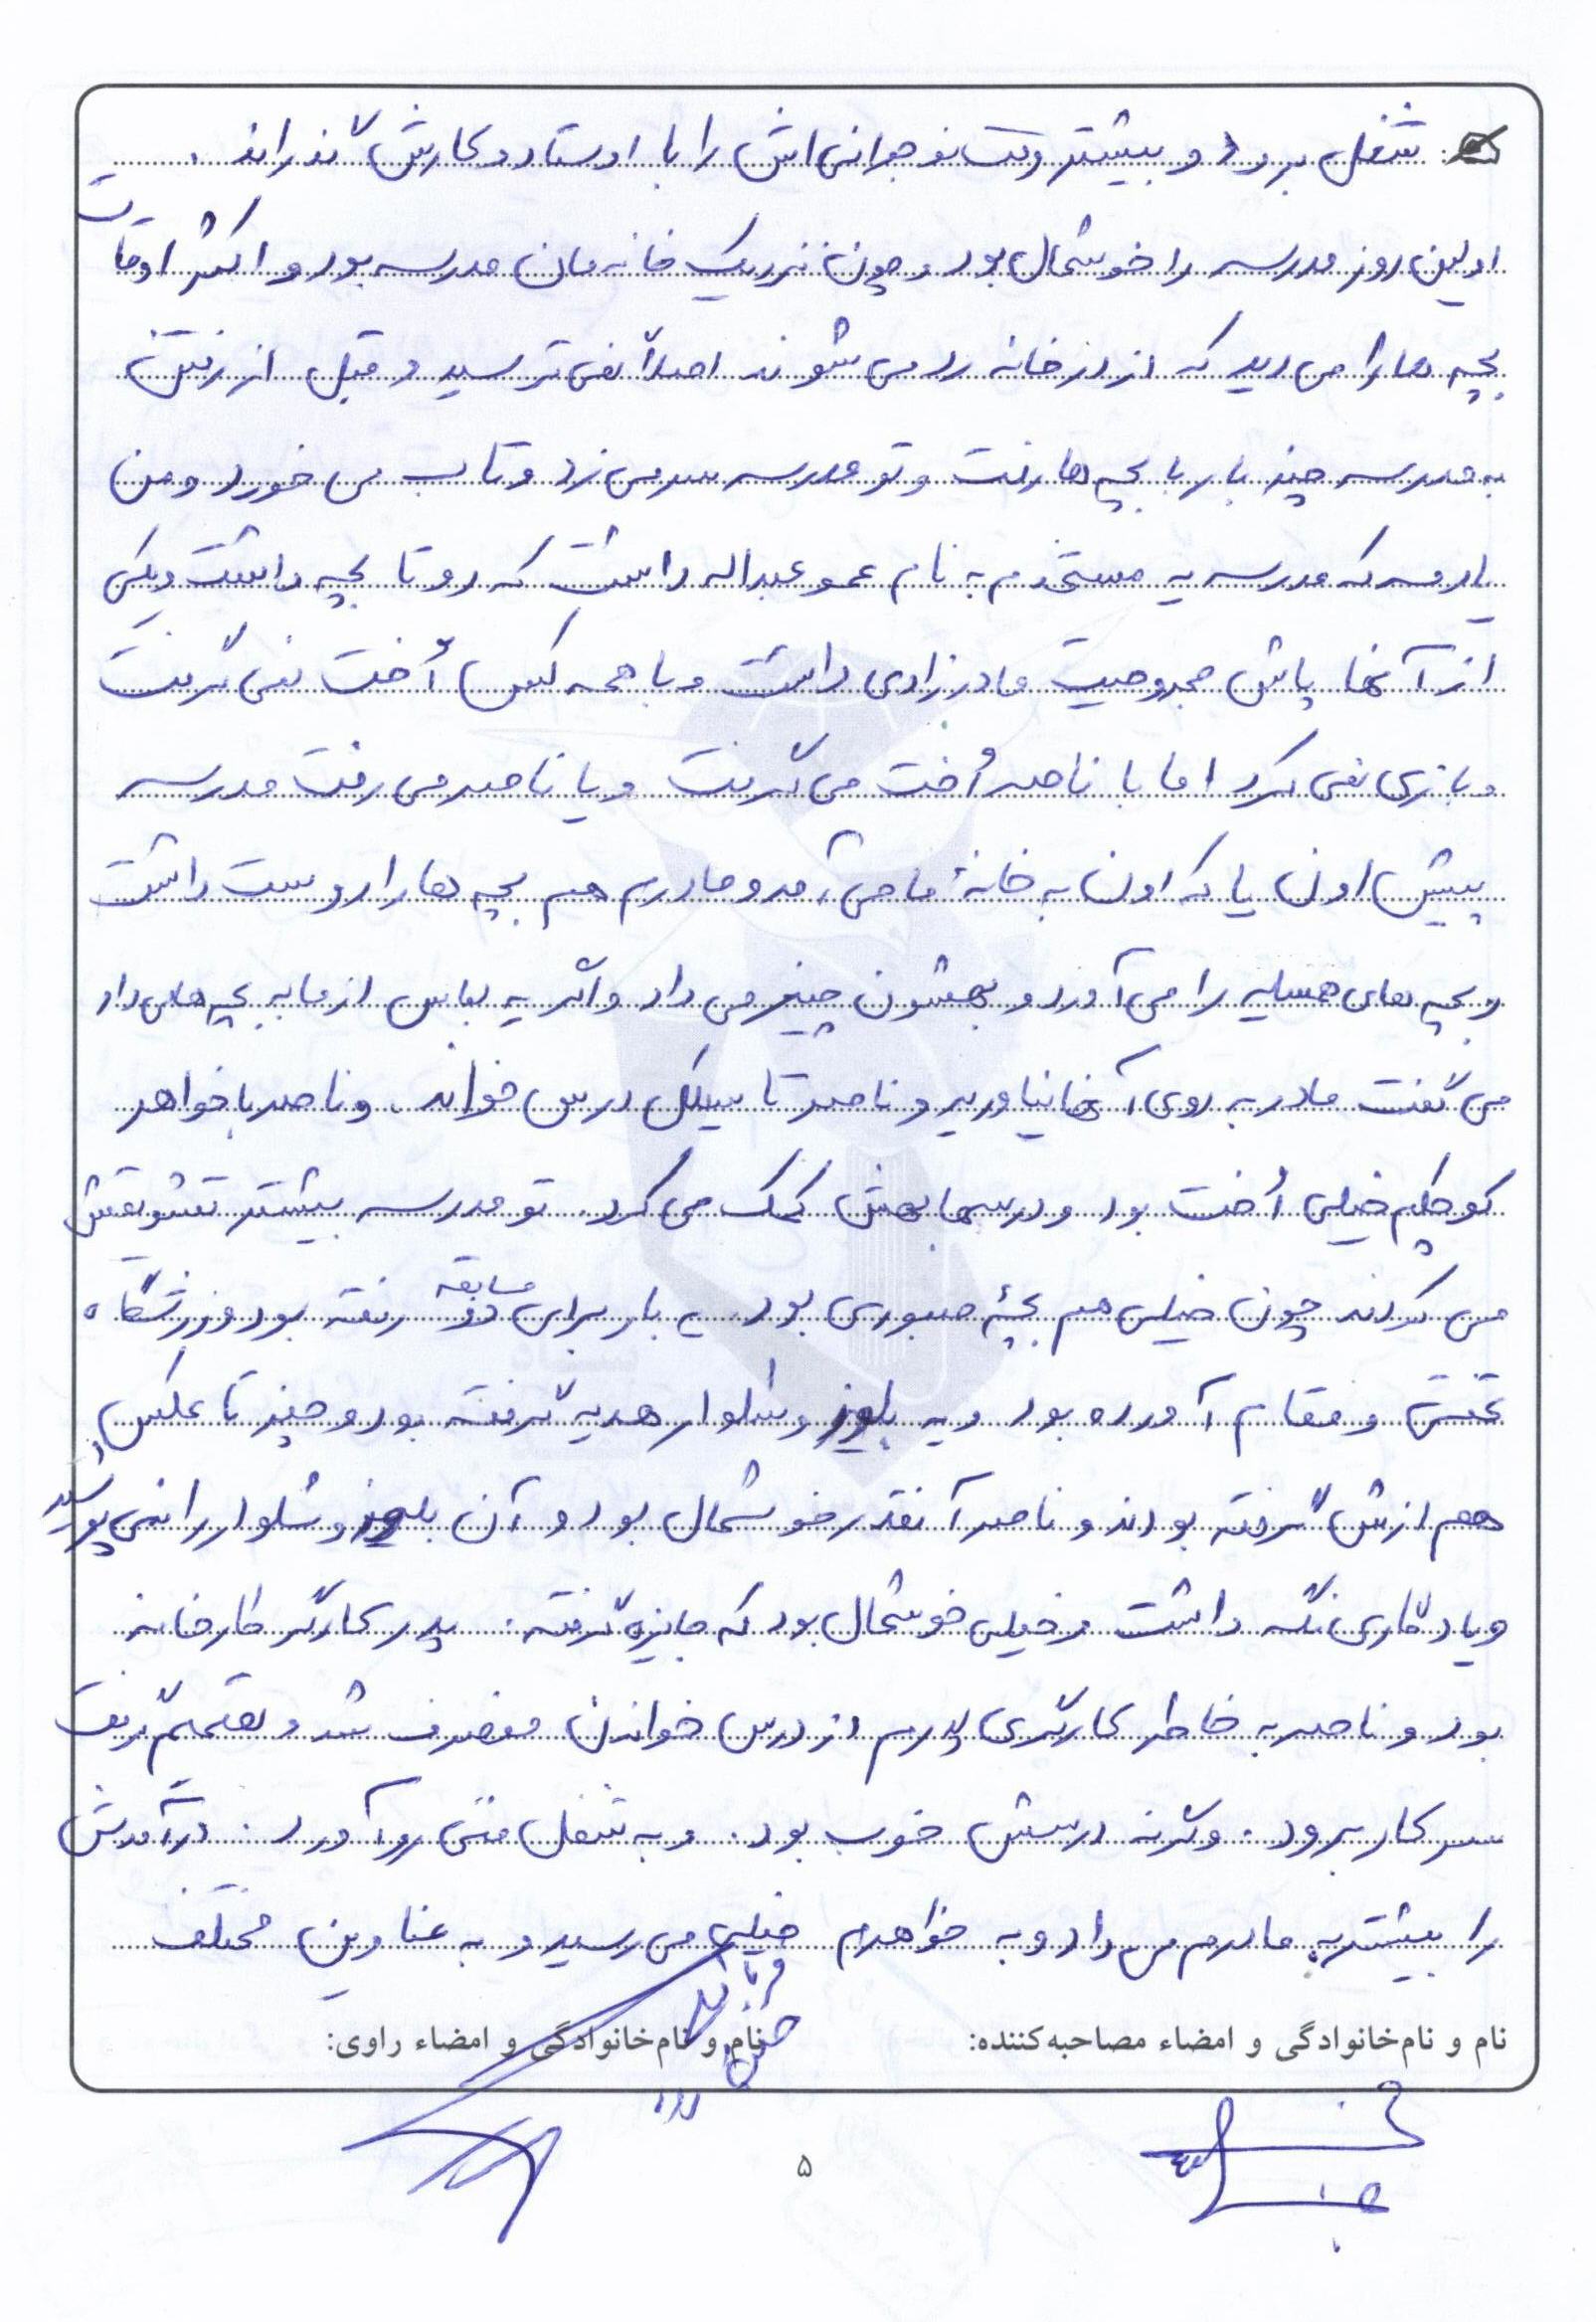 شغل برود و بیشتر وقت نوجوانی‌اش را با اوستاد و کارش گذراند.
اولین روز مدرسه را خوشحال بود و چون نزدیک خانه‌مان مدرسه بود و اکثر اوقات
بچه‌ها را می‌دید که از در خانه رد می‌شوند اصلاً نمی‌ترسید و قبل از رفتن
به مدرسه چند بار با بچه‌ها رفت و تو مدرسه سر می‌زد و تاب می‌خورد و من
یادمه که مدرسه یه مستخدم به نام عمو عبداله داشت که دو تا بچه داشت و یکی
از آنها پاش مجروحیت مادرزادی داشت و با همه کس أخت نمی‌گرفت
و بازی نمی‌کرد اما با ناصر أخت می‌گرفت و یا ناصر می‌رفت مدرسه
پیش اون یا که اون به خانهٔ ما می‌آمد و مادرم هم بچه‌ها را دوست داشت
و بچه‌های همسایه را می‌آورد و بهشون چیز می‌داد و اگر یه لباس از ما به بچه‌ها می‌داد
می‌گفت مادر به روی آنها نیاورید و ناصر تا سیکل درس خواند. و ناصر با خواهر
کوچکیم خیلی أخت بود و درسها بهش کمک می‌کرد. تو مدرسه بیشتر تشویقش
می‌کردند چون خیلی هم بچهٔ صبوری بود. یه بار برای مسابقه دو رفته بود ورزشگاه
تختی و مقام آورده بود و یه بلوز و شلوار هدیه گرفته بود و چند تا عکس
هم ازش گرفته بودند و ناصر آنقدر خوشحال بود و آن بلوز و شلوار را نمی‌پوشید
و یادگاری نگه داشت و خیلی خوشحال بود که جایزه گرفته. پدر کارگر کارخانه
بود و ناصر به خاطر کارگری پدرم از درس خواندن منصرف شد و تصمیم گرفت
سر کار برود. وگرنه درسش خوب بود. و به شغل فنی رو آورد. درآمدش
را بیشتر به مادرم می‌داد و به خواهرم خیلی می‌رسید و به عناوین مختلف
نام و نام‌خانوادگی و امضاء مصاحبه‌کننده: نام و نام‌خانوادگی و امضاء راوی:
۵